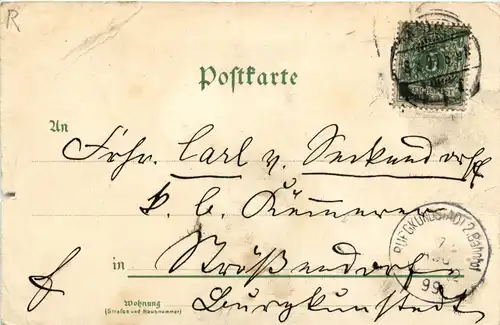 R
Postkarte
An
Frhr. Carl v. Seckendorff
k. b. Kämmerer
in Strößendorf
Wohnung
(Straße und Hausnummer)
Burgkunstadt
BURGKUNDSTADT 2. Bahnhof
7
99